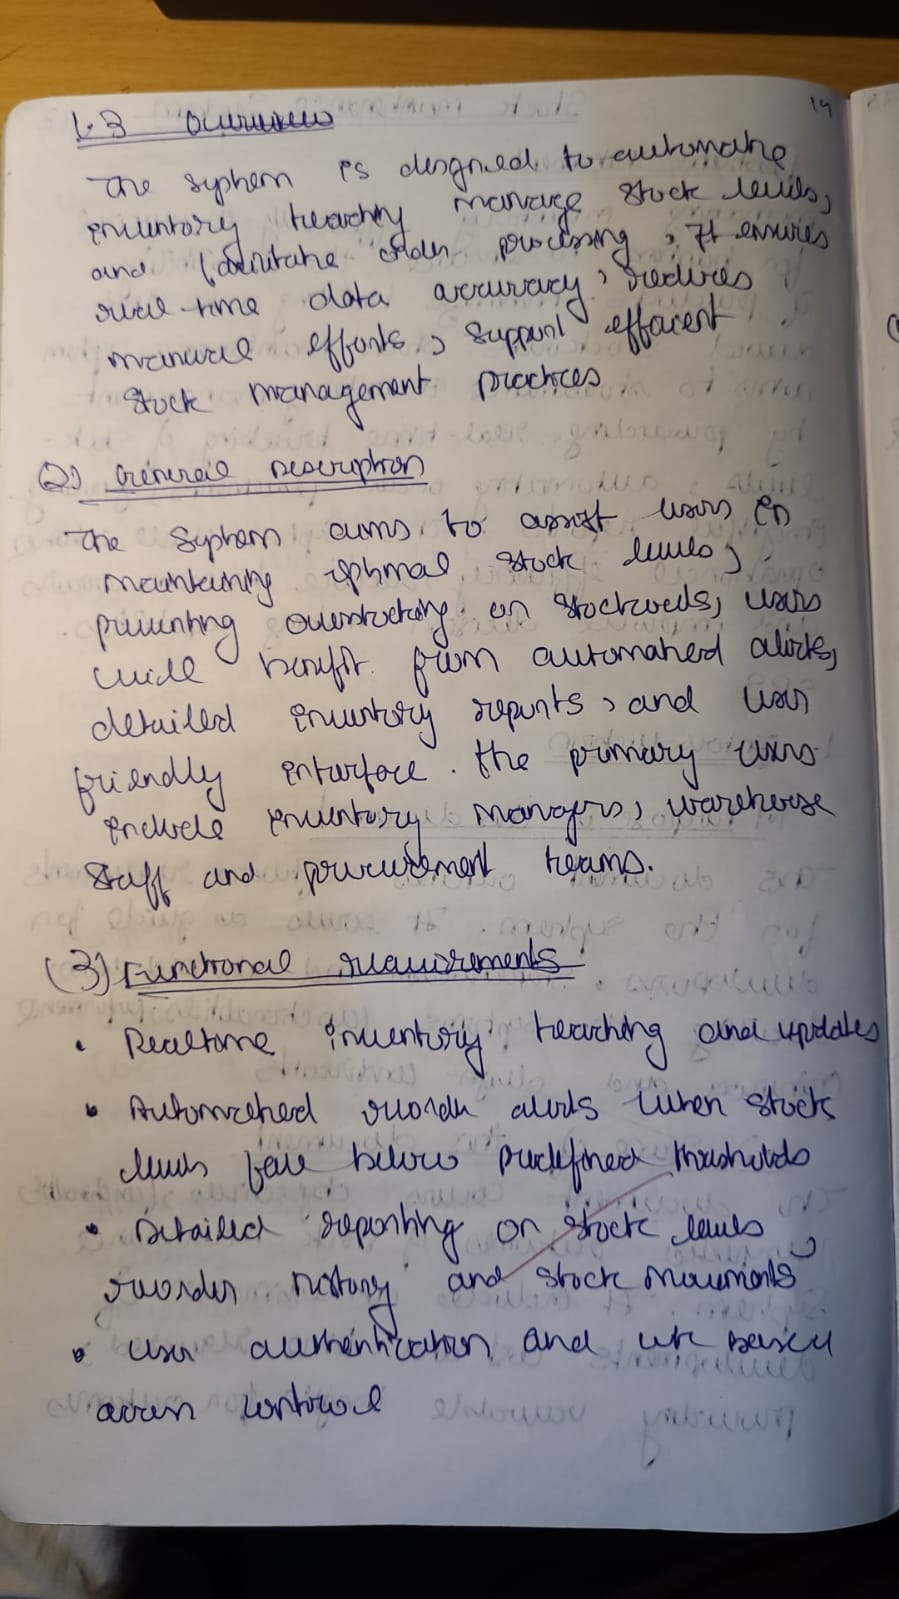 14
1.3 Overview
The system is designed to automate
inventory tracking manage stock levels,
and facilitate order processing, It ensures
real-time data accuracy, reduces
manual efforts, support efficient
stock management practices
(2) General Description
The system aims to assist users in
maintaining optimal stock levels,
preventing overstocking or stockouts, users
will benefit from automated alerts,
detailed inventory reports, and user
friendly interface. the primary users
include inventory managers, warehouse
staff and procurement teams.
(3) Functional requirements
• Realtime inventory tracking and updates
• Automated reorder alerts when stock
levels fall below predefined thresholds
• Detailed reporting on stock levels,
reorder history and stock movements
• User authentication and based
access control